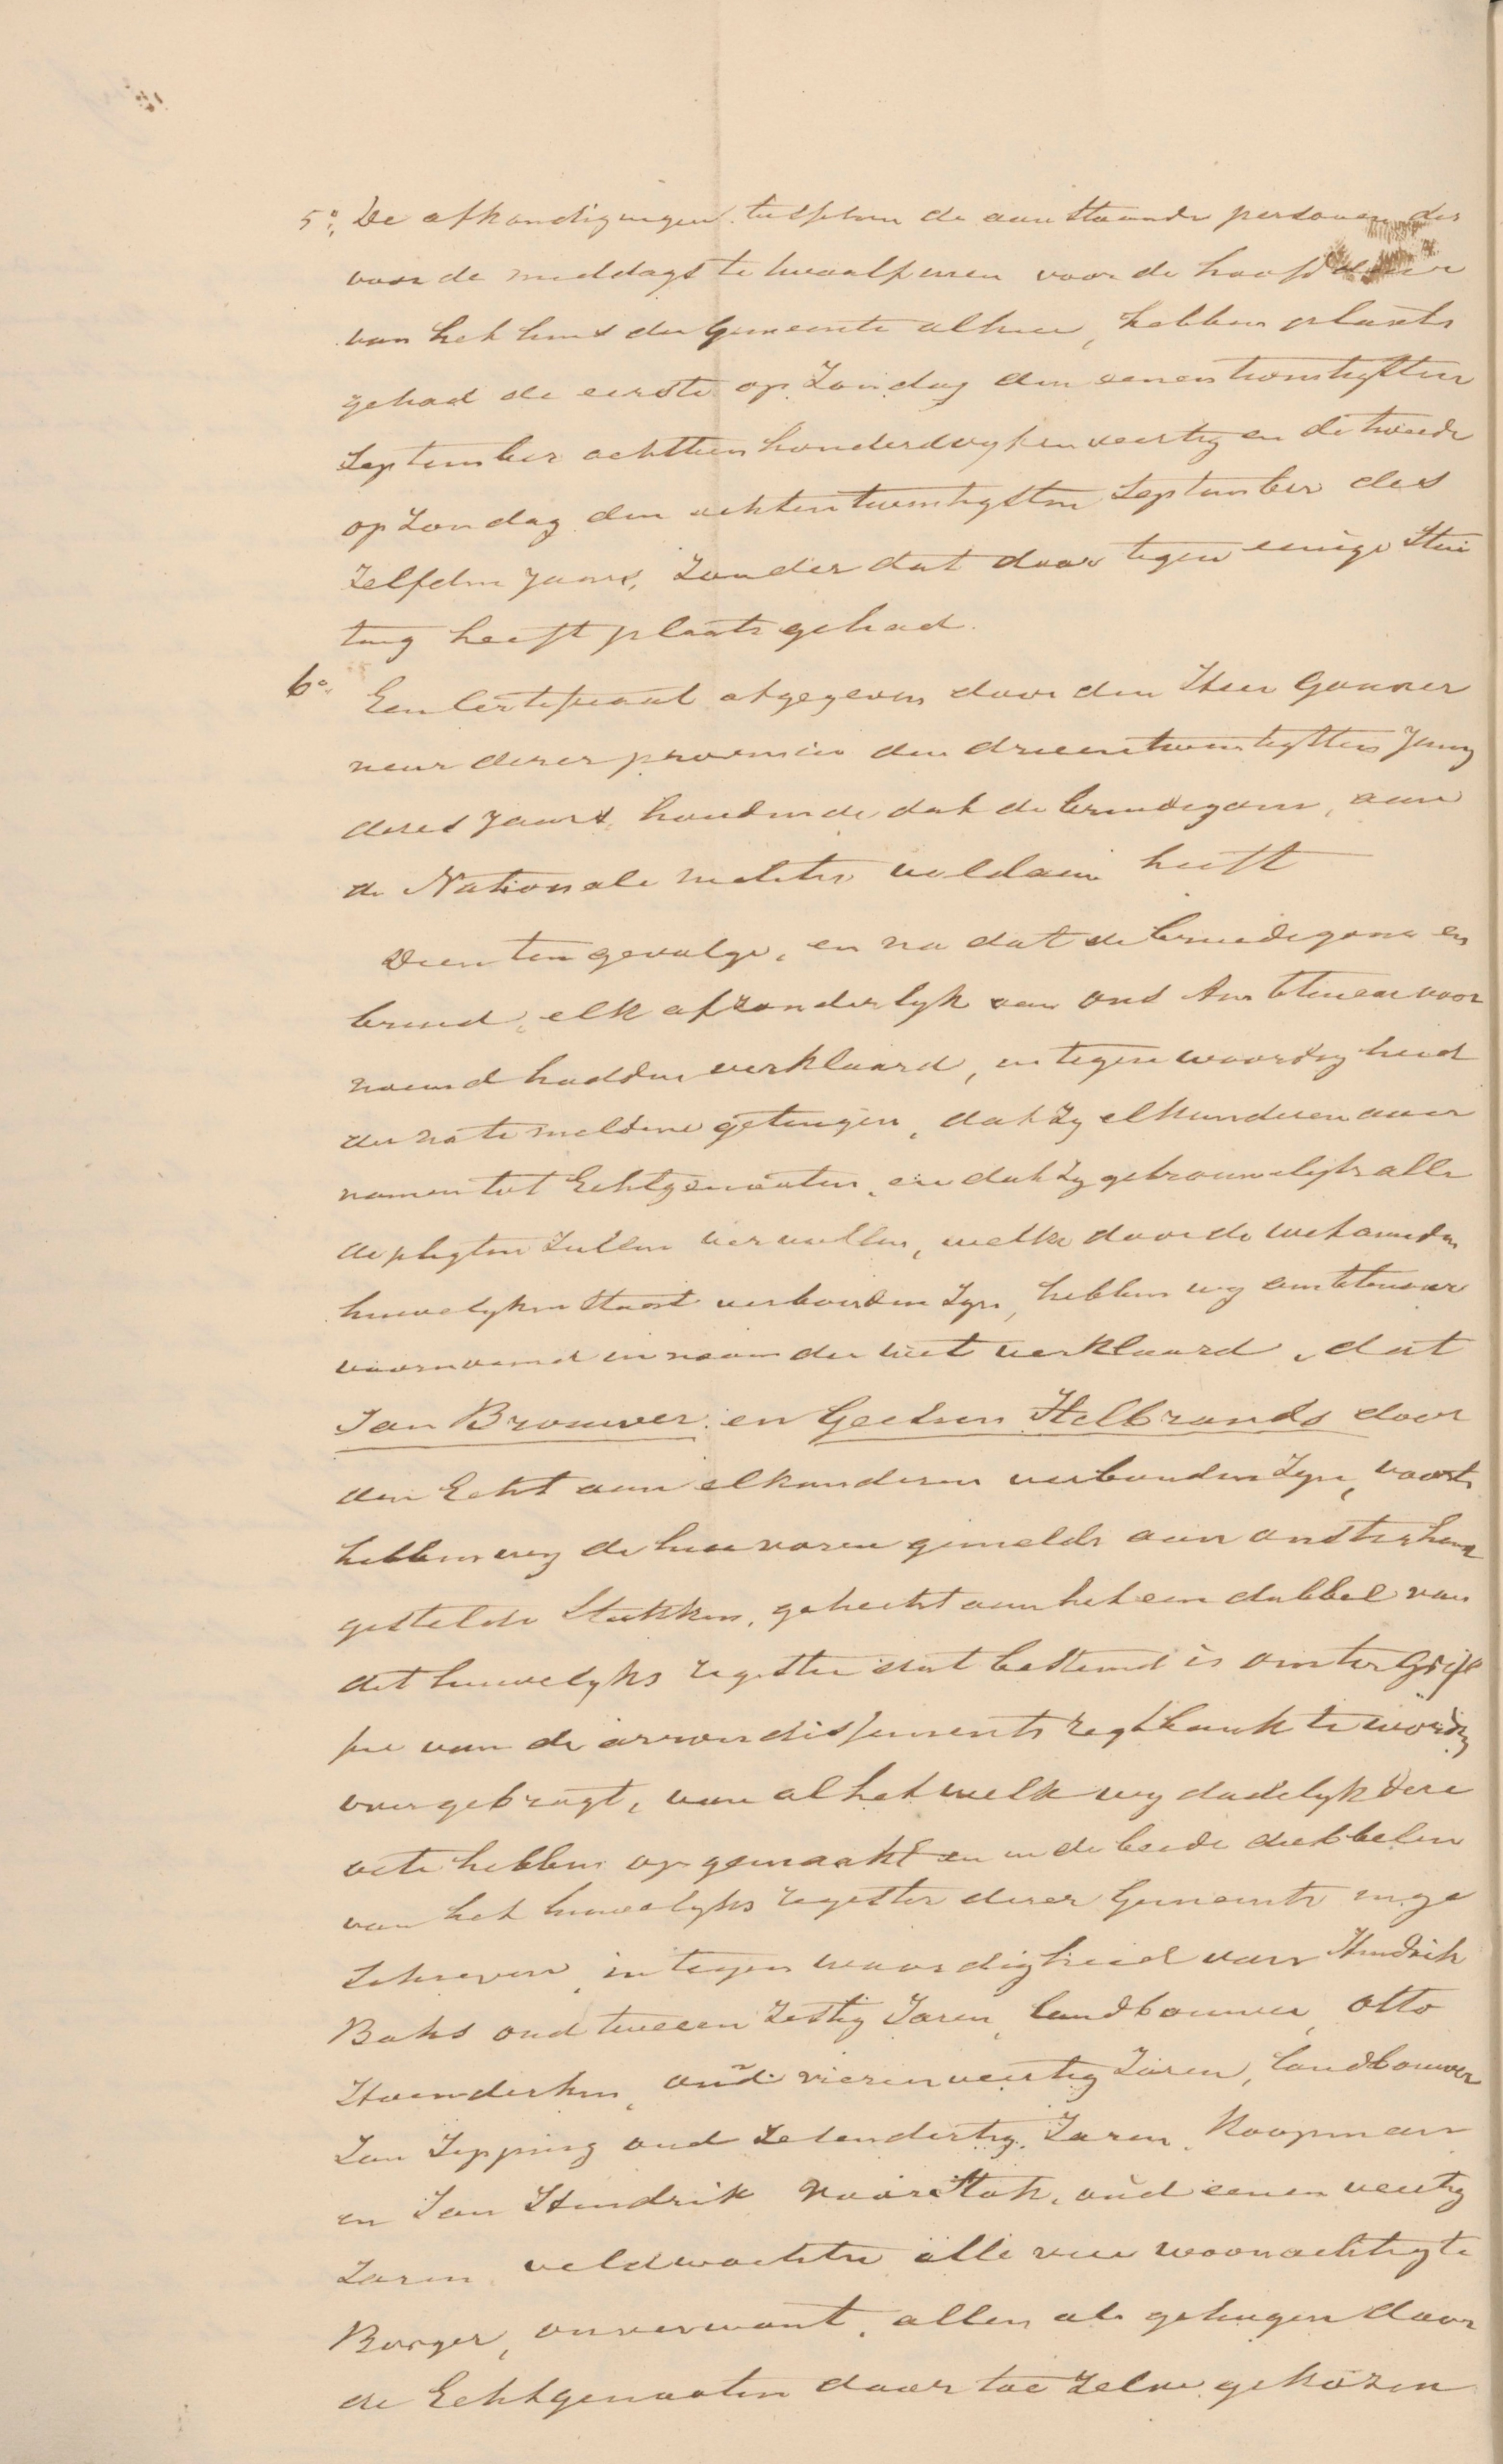 5o; De afkondigingen tusschen de aanstaande personen des
voor de middags te twaalf uren voor de hoofddeur
van het huis der Gemeente alhier, hebben plaats
gehad de eerste op Zondag den eenentwintigsten
September achttien honderd vyf en veertig en de tweede
op Zondag den achtentwintigsten September des
zelfden jaars, zonder dat daar tegen eenige stui
ting heeft plaats gehad.
6o. Een Certificaat afgegeven door den Heer Gouver
neur dezer provincie den drieentwintigsten Juny
dezes jaars, houdende dat de bruidegom, aan
de Nationale melitie voldaan heeft
Dien ten gevolge, en na dat de bruidegom en
bruid, elk afzonderlyk aan ons Ambtenaar voor
noemd hadden verklaard, in tegenwoordigheid
der na te meldene getuigen, dat zy elkanderen aan
namen tot Echtgenooten, en dat zy getrouwelyk alle
de pligten zullen vervullen, welke door de wet aan den
huwelyken staat verbonden zyn, hebben wy ambtenaar
voornoemd in naam der wet verklaard, dat
Jan Brouwer en Geesien Hilbrands door
den Echt aan elkanderen verbonden zyn, voorts
hebben wy de hier voren gemelde aan ons ter hand
gestelde stukken, gehecht aan het een dubbel van
dit huwelyks register dat bestemd is om ter Grif
fie van de arrondissements regtbank te worden
overgebragt, van al het welk wy dadelyk deze
acte hebben opgemaakt en in de beide dubbelen
van het huwelyks register dezer Gemeente inge
schreven, in tegenwoordigheid van Hendrik
Baks oud tweeen zestig Jaren, landbouwer, Otto
Hoenderken, oud vierenveertig Jaren, landbouwer
Jan Tepping oud zevendertig Jaren, Koopman
en Jan Hendrik Voorstok, oud eenen veertig
Jaren veldwachter alle vier woonachtig te
Borger, onverwant, allen als getuigen door
de Echtgenooten daar toe zelve gekozen